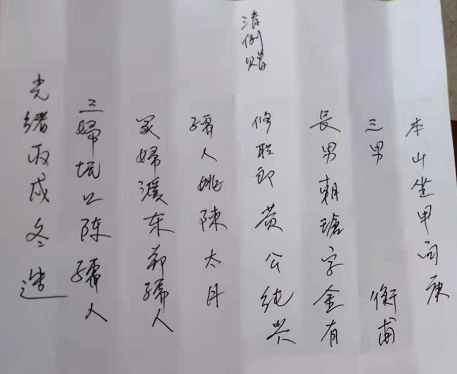 本山坐甲向庚
三男 衡甫
長男朝瑲字金有
清例赠
修职郎黄公纯兴
孺人妣陳太母
冢婦溪东郑孺人
三婦坑口陈孺人
光绪丙戌冬造